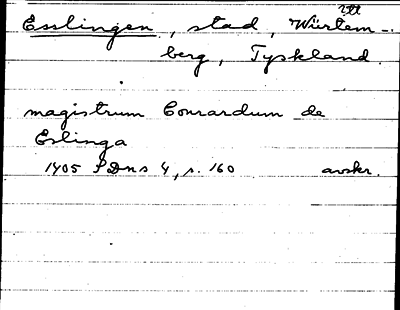 Esslingen, stad, Würtem-
berg, Tyskland.
magistrum Conrardum de
Eslinga
1405 SDns 4, s. 160 avskr.